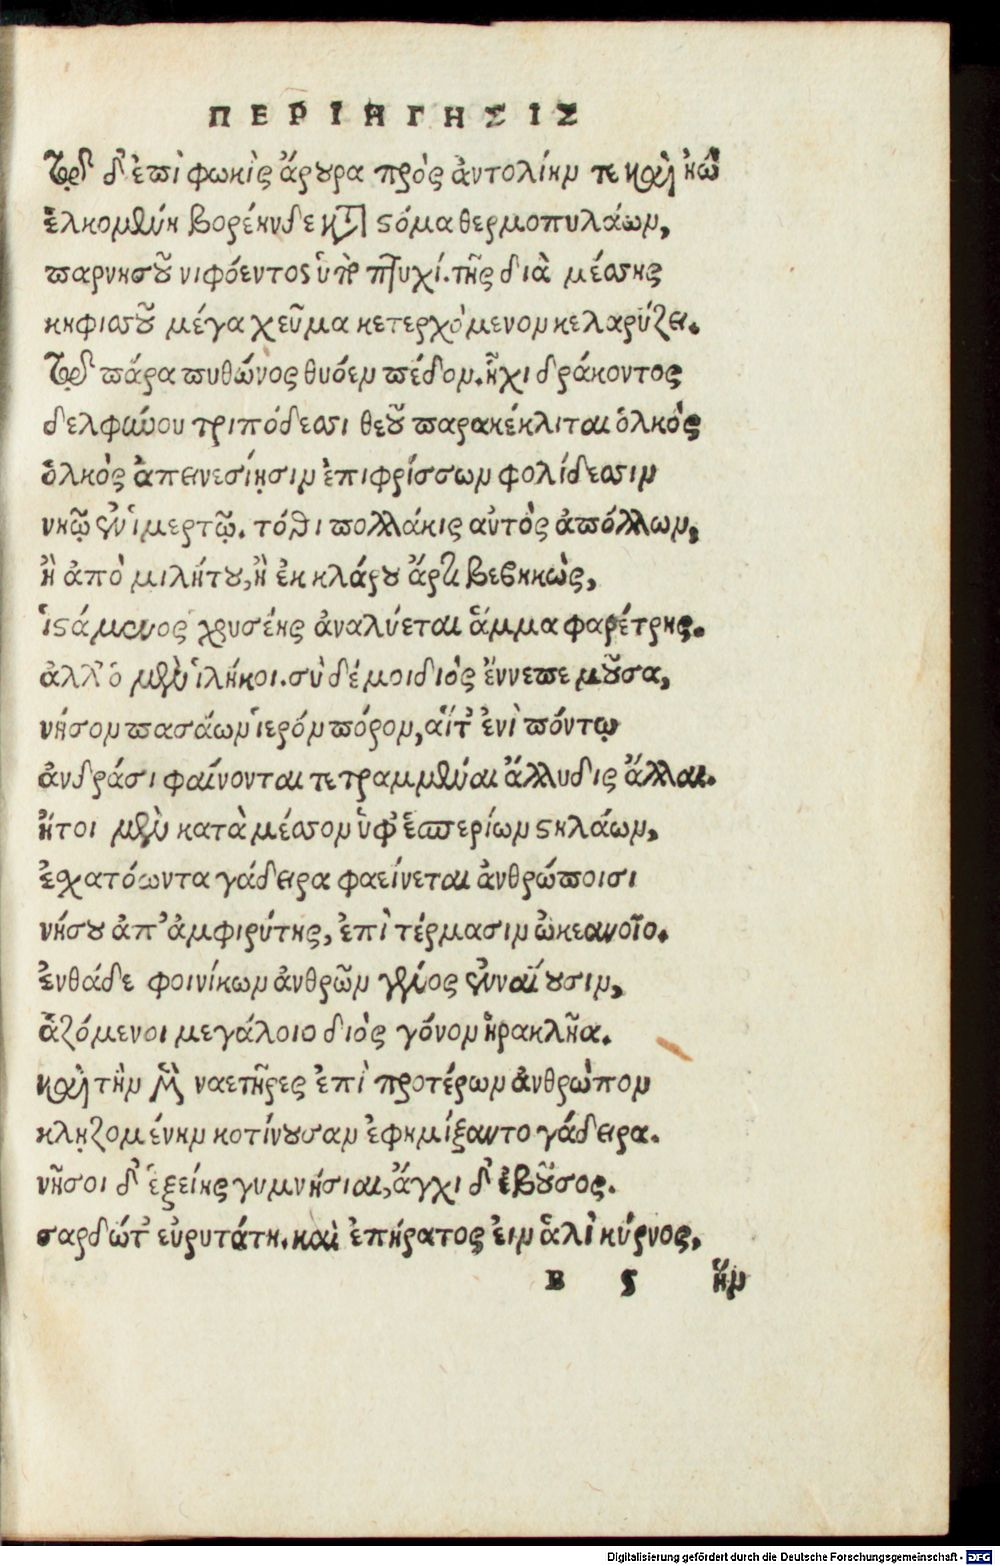 ΠΕΡΙΗΓΗΣΙΣ
τῇ δ' ἐπὶ φωκὶς ἄρουρα πρὸς ἀντολίην τε καὶ ἠῶ
ἑλκομένη βορέηνδε κατὰ στόμα θερμοπυλάων,
παρνησοῦ νιφόεντος ὑπὸ πτυχί. τῆς διὰ μέσσης
κηφισσοῦ μέγα χεῦμα κετερχόμενον κελαρύζει.
τῇ πάρα πυθῶνος θυόεν πέδον. ἧχι δράκοντος
δελφύνου τριπόδεσσι θεοῦ παρακέκλιται ὁλκὸς
ὁλκὸς ἀπειρεσίῃσιν ἐπιφρίσσων φολίδεσσιν
νηῷ ἐν ἱμερτῷ. τόθι πολλάκις αὐτὸς ἀπόλλων,
ἢ ἀπὸ μιλήτου, ἢ ἐκ κλάρου ἄρτι βεβηκὼς,
ἱστάμενος χρυσέης ἀναλύεται ἅμμα φαρέτρης.
ἀλλ' ὁ μὲν ἱλήκοι. σὺ δέ μοι διὸς ἔννεπε μοῦσα,
νήσων πασάων ἱερὸν πόρον, αἵτ' ἐνὶ πόντῳ
ἀνδράσι φαίνονται τετραμμέναι ἄλλυδις ἄλλαι.
ἤτοι μὲν κατὰ μέσσον ὑφ' ἑσπερίων στηλάων,
ἐσχατόωντα γάδειρα φαείνεται ἀνθρώποισι
νήσου ἀπ' ἀμφιρύτης, ἐπὶ τέρμασιν ὠκεανοῖο.
ἐνθάδε φοινίκων ἀνδρῶν γένος ἐνναίουσιν,
ἁζόμενοι μεγάλοιο διὸς γόνον ἡρακλῆα.
καὶ τὴν μὲν ναετῆρες ἐπὶ προτέρων ἀνθρώπον
κληζομένην κοτινοῦσαν ἐφημίξαντο γάδειρα.
νῆσοι δ' ἑξείης γυμνήσιαι, ἄγχι δ' ἔβουσος.
σαρδώ τ' εὐρυτάτη. καὶ ἐπήρατος εἰν ἁλὶ κύρνος,
B 5 ἥν
Digitalisierung gefördert durch die Deutsche Forschungsgemeinschaft - DFG